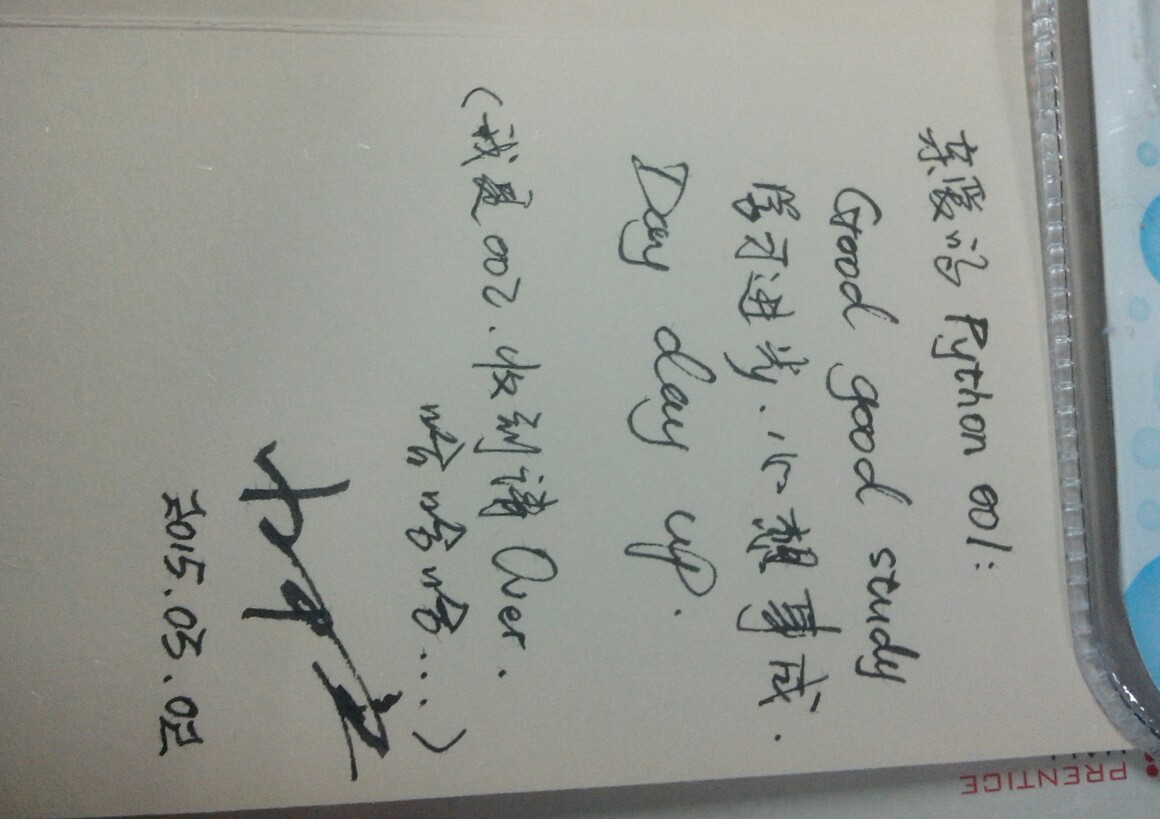 亲爱的 Python 001:
Good good study
学习进步.心想事成.
Day day up.
(我是002.收到请Over.
哈哈哈...)
2015.03.02
PRENTICE